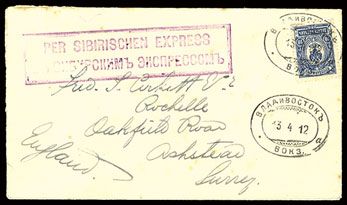 PER SIBIRISCHEN EXPRESS
СИБИРСКИМЪ ЭКСПРЕССОМЪ
ВЛАДИВОСТОКЪ
Fred. J.
Rochelle
Oakfield Road
Ashstead
Surrey.
England.
ВЛАДИВОСТОКЪ
13 4 12
ВОКЗ.
а